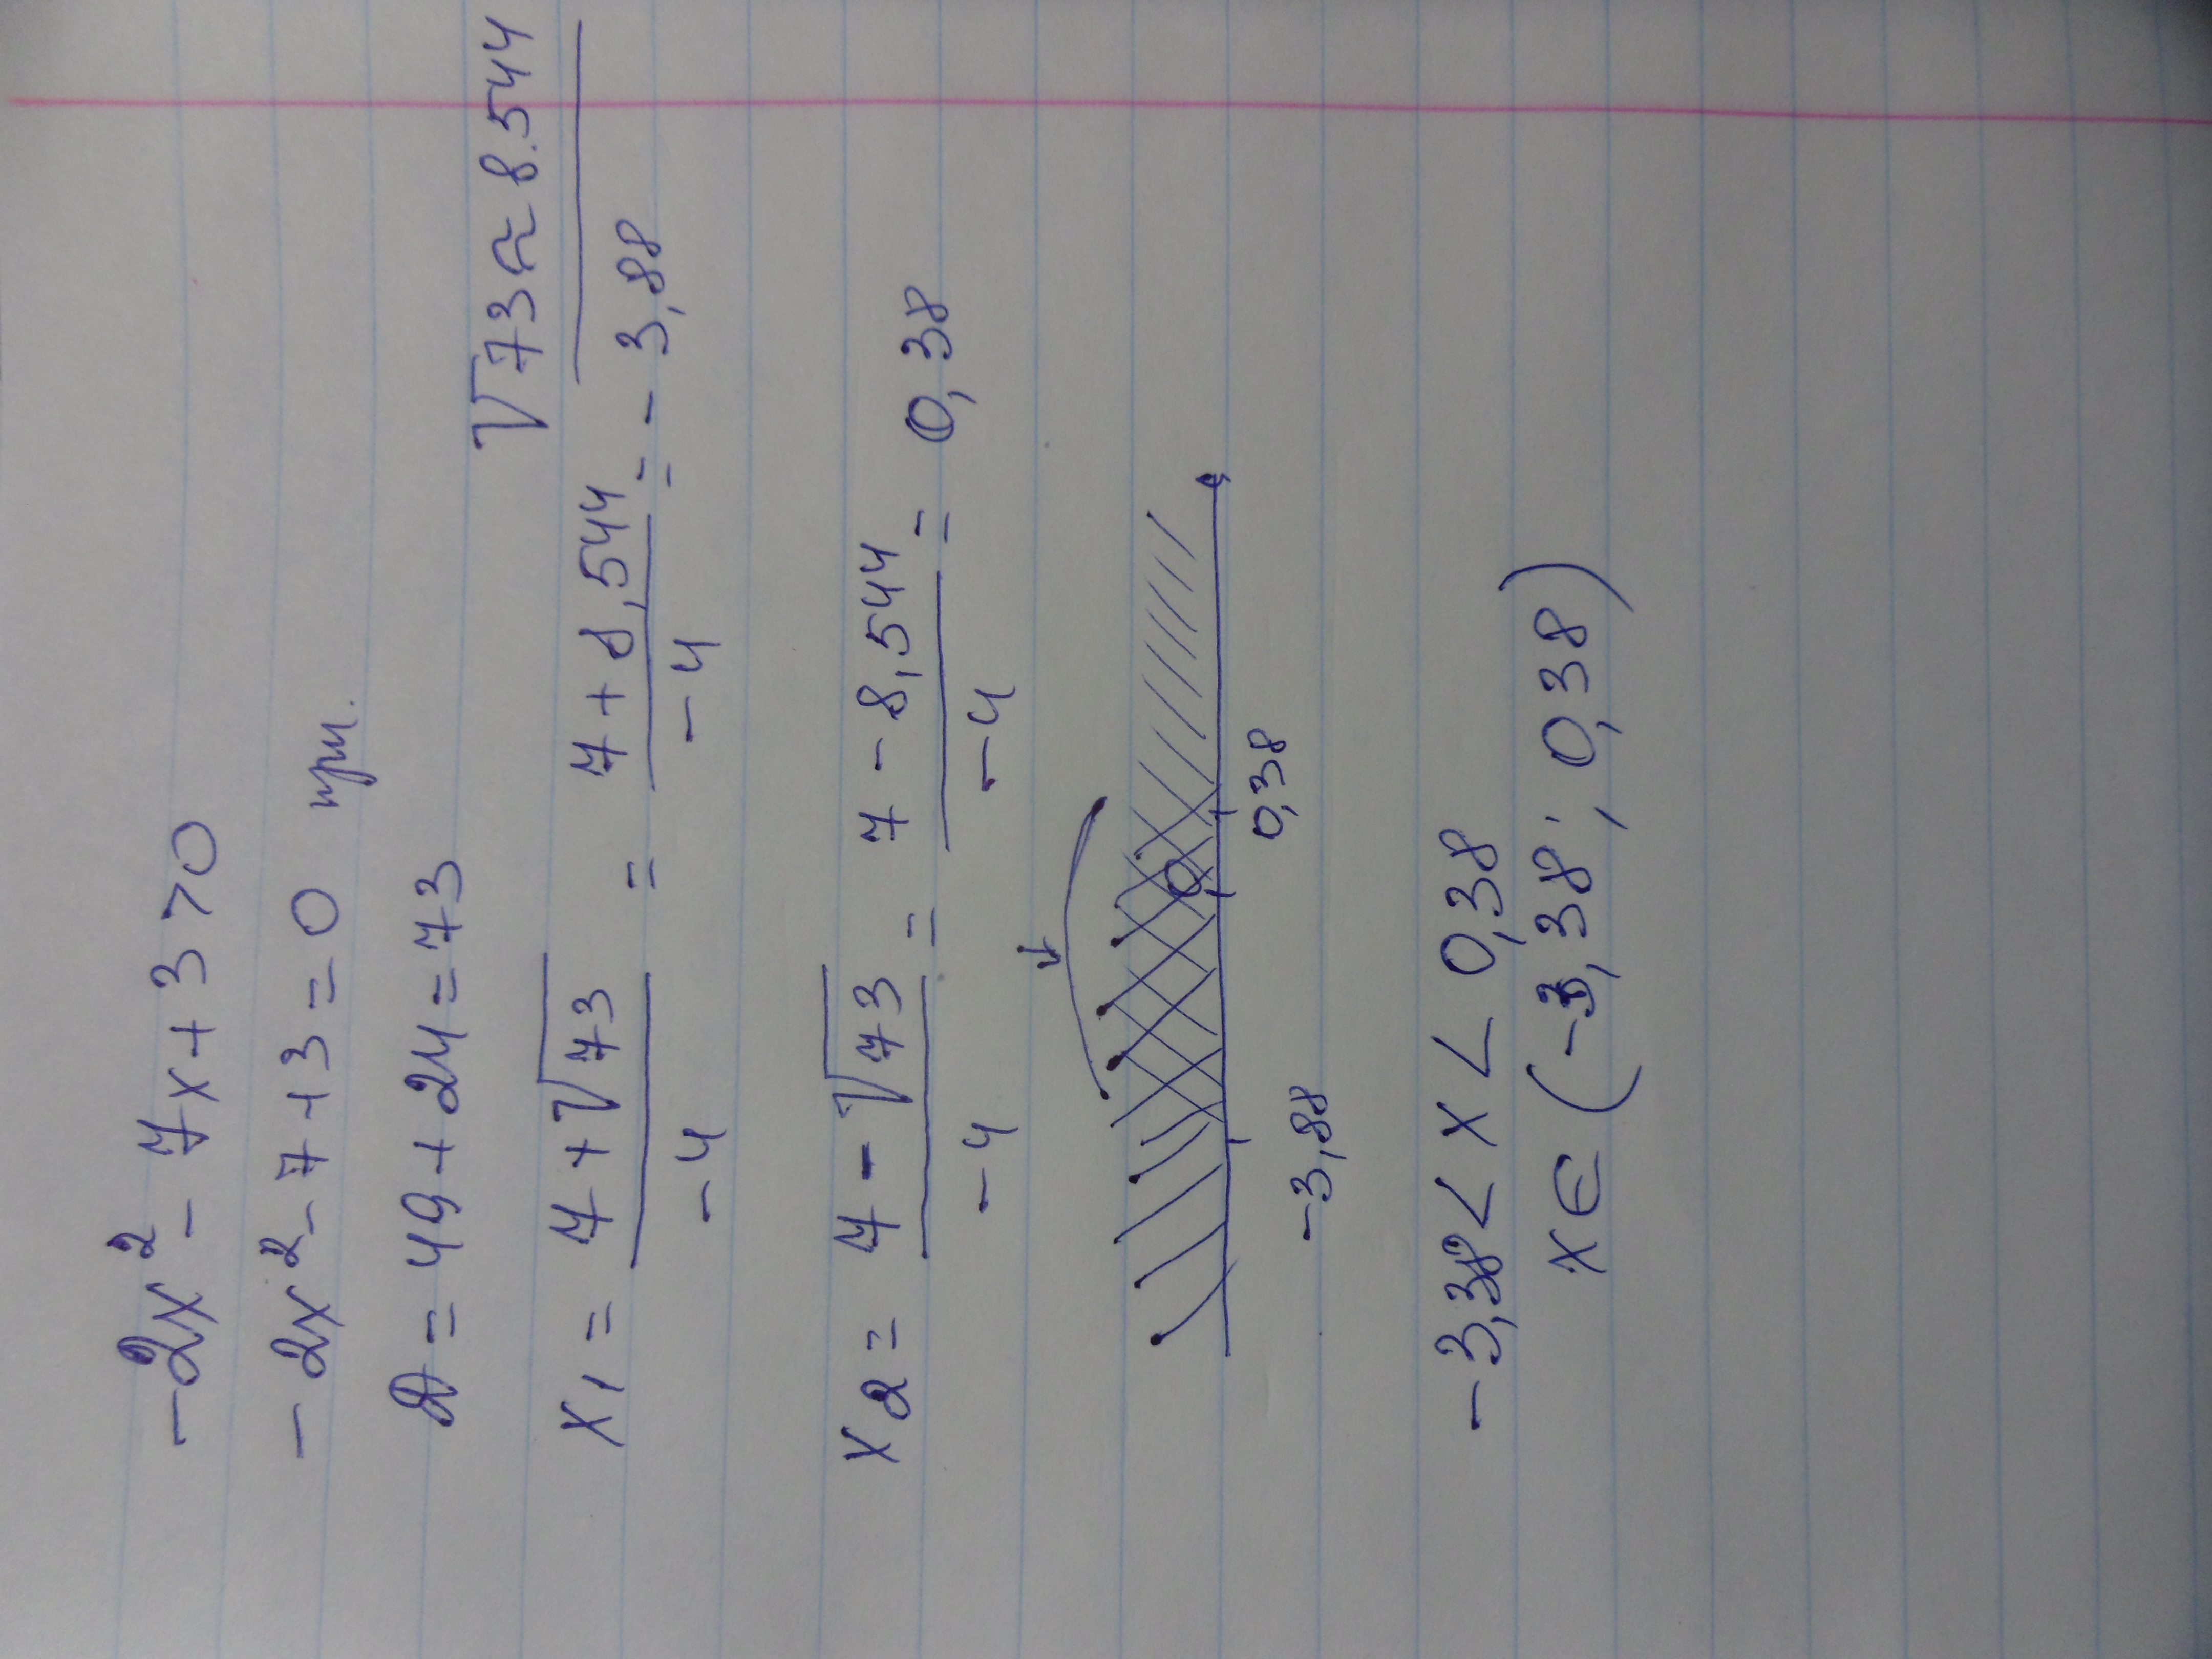 -2x² - 7x + 3 > 0
-2x² - 7 + 3 = 0 при.
D = 49 + 24 = 73
√73 ≈ 8.544
x₁ = (7 + √73)/-4 = (7 + 8,544)/-4 = -3,88
x₂ = (7 - √73)/-4 = (7 - 8,544)/-4 = 0,38
0
-3,88 0,38
-3,38 < x < 0,38
x ∈ (-3,38; 0,38)